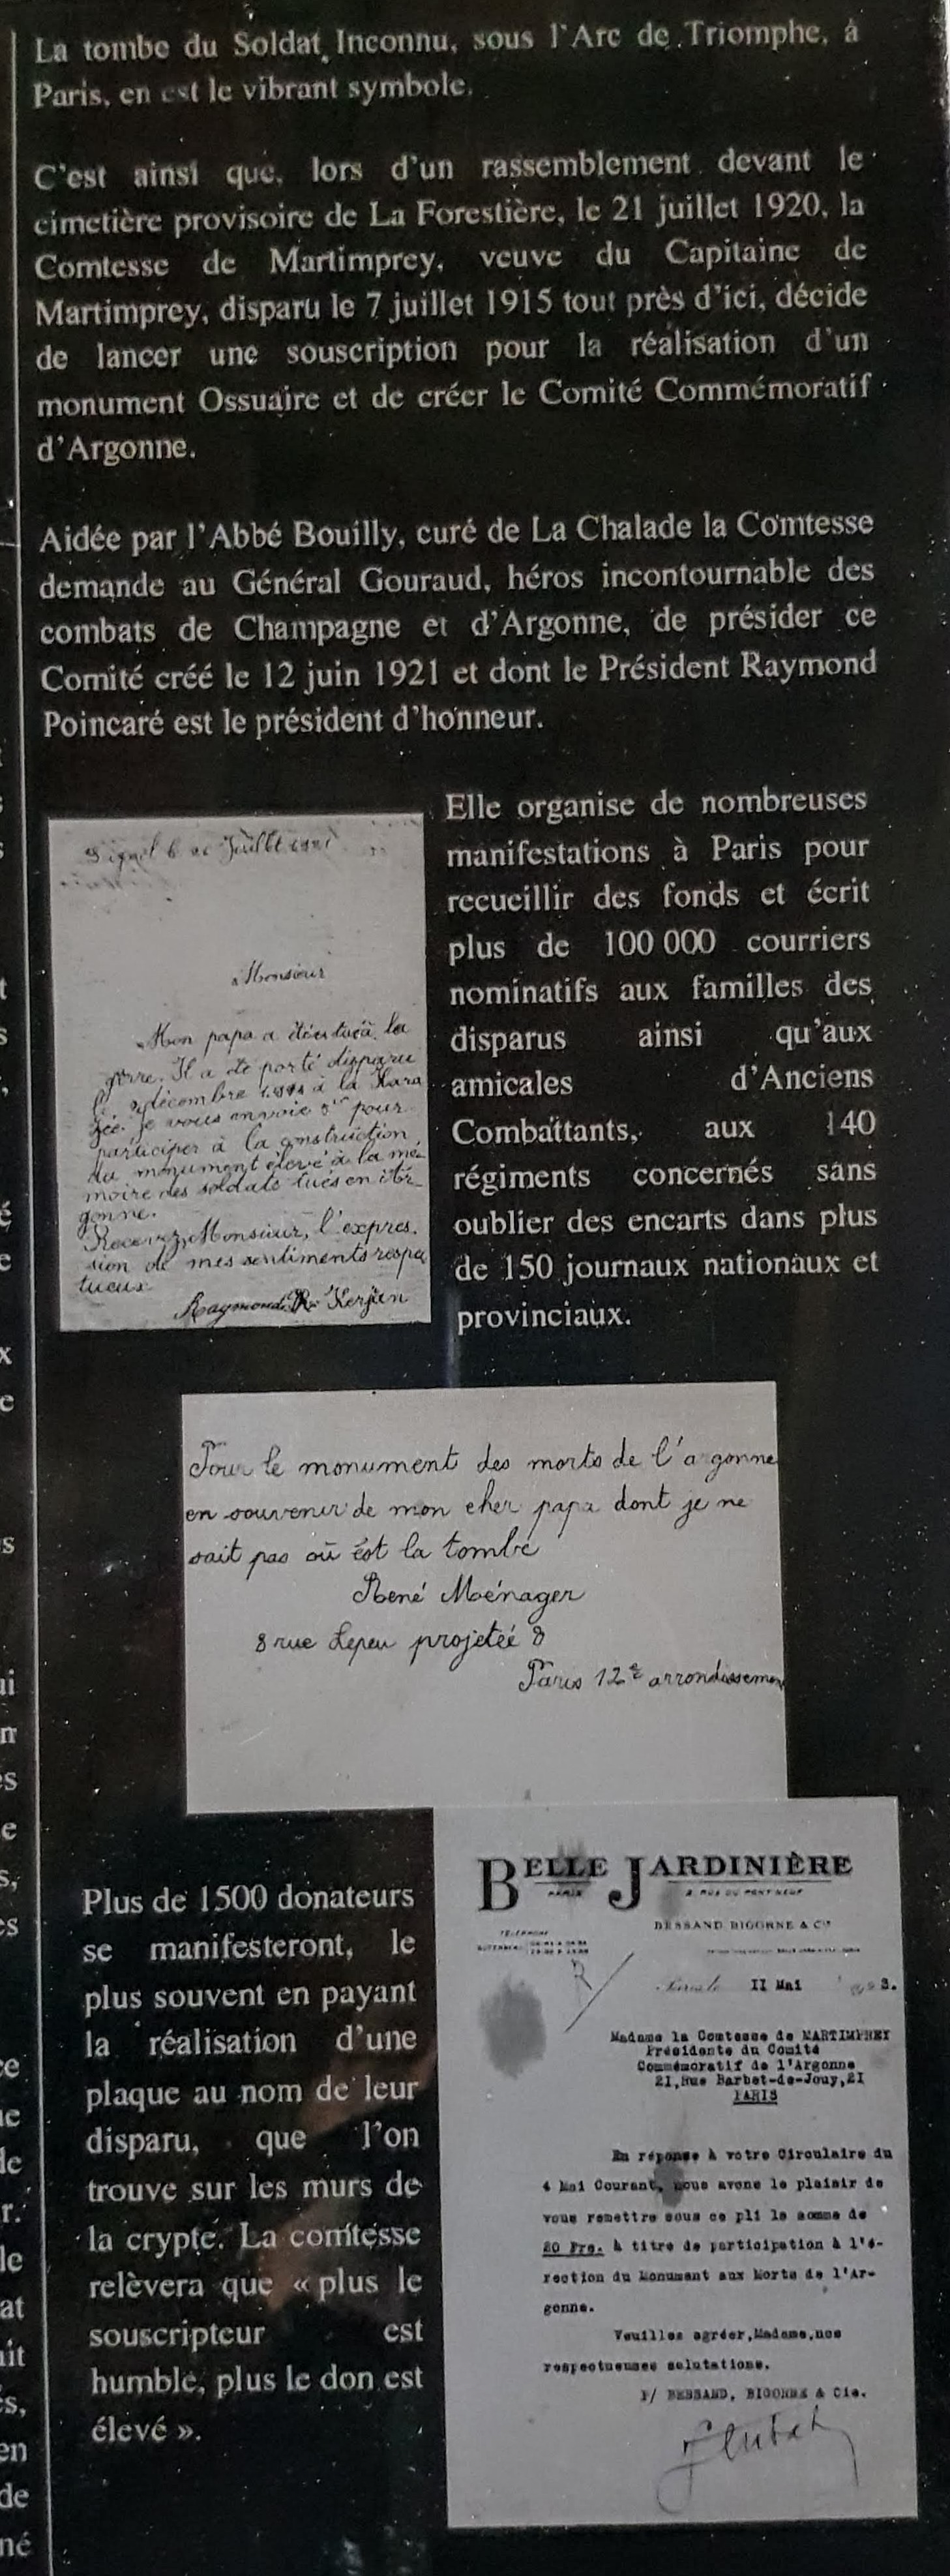 La tombe du Soldat Inconnu, sous l'Arc de Triomphe, à
Paris, en est le vibrant symbole.
C'est ainsi que, lors d'un rassemblement devant le
cimetière provisoire de La Forestière, le 21 juillet 1920, la
Comtesse de Martimprey, veuve du Capitaine de
Martimprey, disparu le 7 juillet 1915 tout près d'ici, décide
de lancer une souscription pour la réalisation d'un
monument Ossuaire et de créer le Comité Commémoratif
d'Argonne.
Aidée par l'Abbé Bouilly, curé de La Chalade la Comtesse
demande au Général Gouraud, héros incontournable des
combats de Champagne et d'Argonne, de présider ce
Comité créé le 12 juin 1921 et dont le Président Raymond
Poincaré est le président d'honneur.
Elle organise de nombreuses
manifestations à Paris pour
recueillir des fonds et écrit
plus de 100 000 courriers
nominatifs aux familles des
disparus ainsi qu'aux
amicales d'Anciens
Combattants, aux 140
régiments concernés sans
oublier des encarts dans plus
de 150 journaux nationaux et
provinciaux.
Juillet
Monsieur
Mon papa a été tué à la
gerre. Il a été porté disparu
le décembre à la Hara
zée. je vous envoie pour
participer à la construction
du monument élevé à la mé-
moire des soldats tués en
gonne.
Recevez, Monsieur, l'expres-
sion de mes sentiments respec
tueux
Raymond Kerjean
Pour le monument des morts de l'argonne
en souvenir de mon cher papa dont je ne
sait pas où est la tombe
René Ménager
8 rue Lepeu projetée 8
Paris 12e arrondissement
Plus de 1500 donateurs
se manifesteront, le
plus souvent en payant
la réalisation d'une
plaque au nom de leur
disparu, que l'on
trouve sur les murs de
la crypte. La comtesse
relèvera que « plus le
souscripteur est
humble, plus le don est
élevé ».
BELLE JARDINIÈRE
PARIS 2 RUE DU PONT NEUF
BESSAND BIGORNE & Cie
TÉLÉPHONE
R
Paris le 11 Mai 3.
Madame la Comtesse de MARTIMPREY
Présidente du Comité
Commémoratif de l'Argonne
21,Rue Barbet-de-Jouy,21
PARIS
En réponse à votre Circulaire du
4 Mai Courant, nous avons le plaisir de
vous remettre sous ce pli la somme de
20 Frs. à titre de participation à l'é-
rection du Monument aux Morts de l'Ar-
gonne.
Veuillez agréer,Madame,nos
respectueuses salutations.
P/ BESSAND, BIGORNE & Cie.